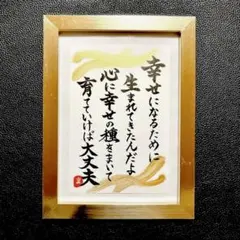 幸せになるために
生まれてきたんだよ
心に幸せの種をまいて
育てていけば大丈夫